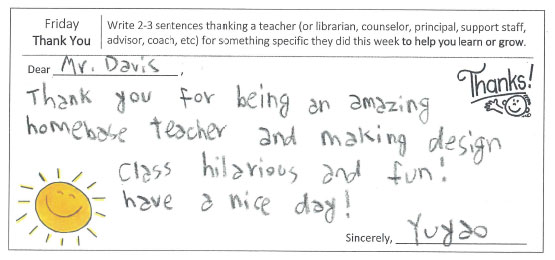 Friday
Thank You
Write 2-3 sentences thanking a teacher (or librarian, counselor, principal, support staff,
advisor, coach, etc) for something specific they did this week to help you learn or grow.
Dear Mr. Davis,
Thanks!
Thank you for being an amazing
homebase teacher and making design
class hilarious and fun!
have a nice day!
Sincerely, Yuyao